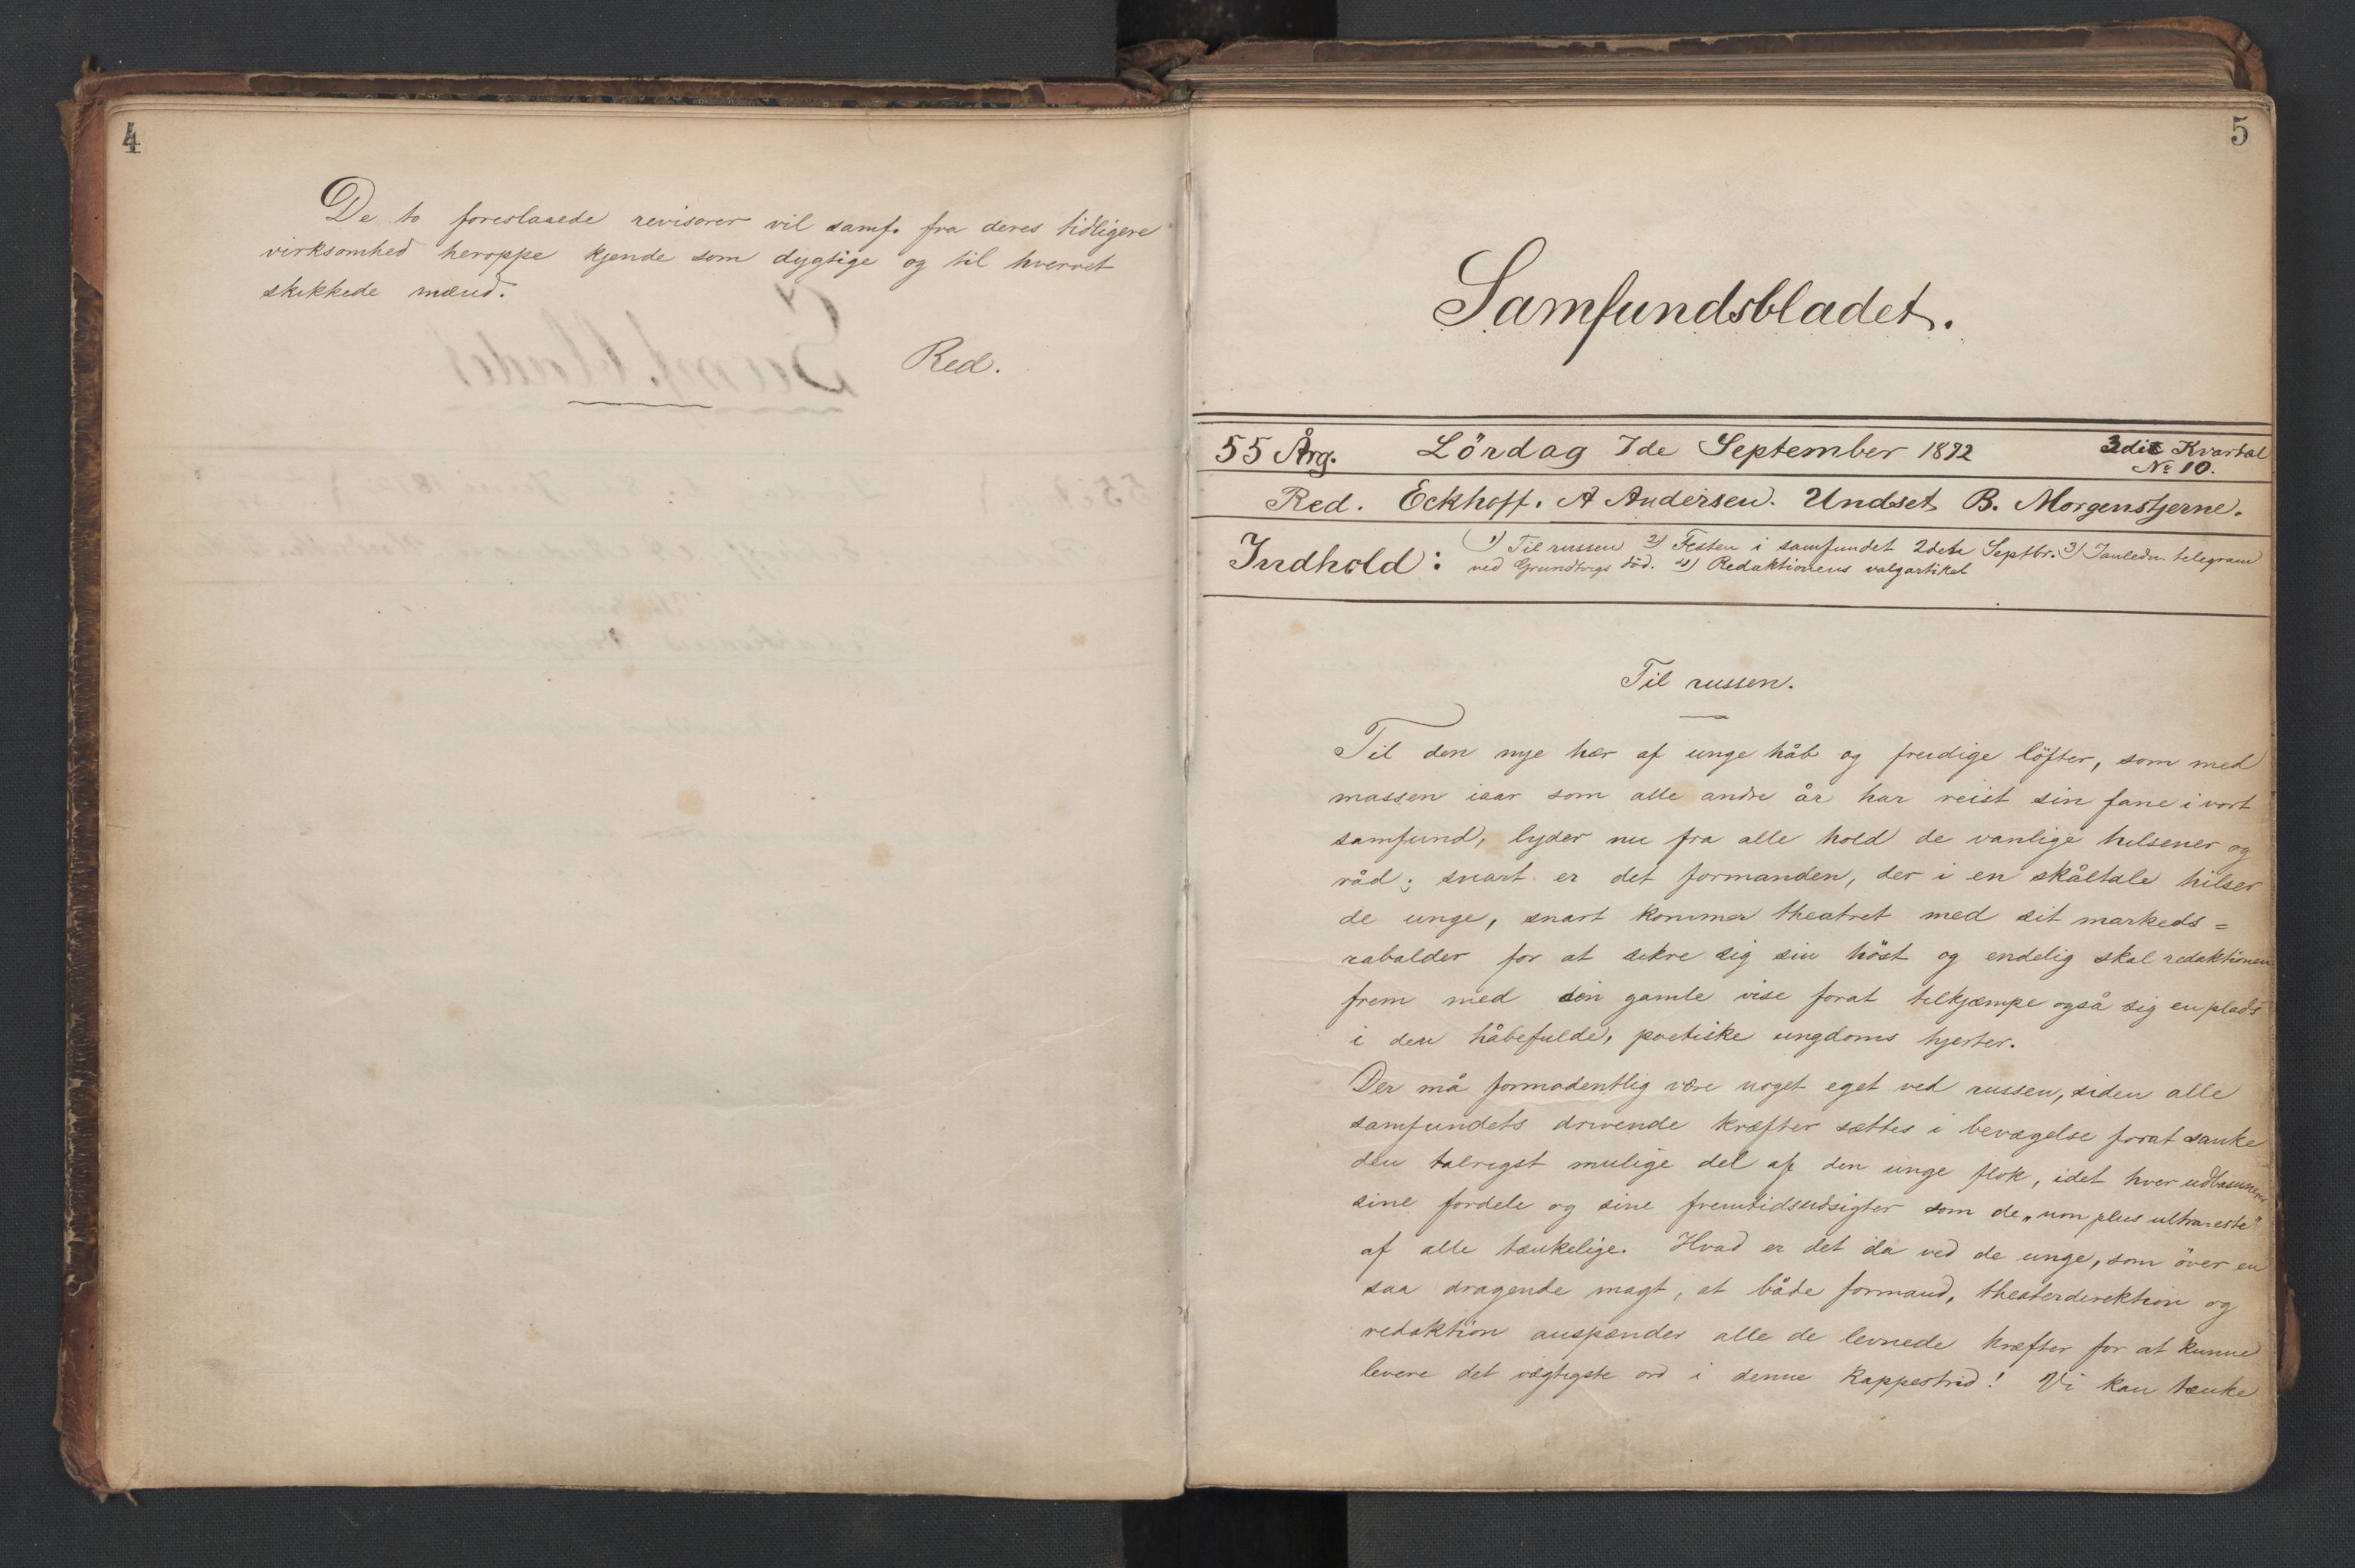 4
De to foreslaaede revisorer vil samf. fra deres tidligere
virksomhed heroppe kjende som dygtige og til hvervet
skikkede mænd.
Red.
5
Samfundsbladet.
55 Årg. Lördag 7de September 1872 3die Kvartal
No 10.
Red. Eckhoff. A Andersen. Undset B. Morgenstjerne.
Indhold: 1) Til russen 2) Festen i samfundet 2den Septbr. 3) I anledn. telegram
ved Grundtvigs död. 4) Redaktionens valgartikel
Til russen.
Til den nye hær af unge håb og freidige löfter, som med
massen iaar som alle andre år har reist sin fane i vort
samfund, lyder nu fra alle hold de vanlige hilsener og
råd; snart er det formanden, der i en skåltale hilser
de unge, snart kommer theatret med sit markeds=
rabalder for at sikre sig sin höst og endelig skal redaktionen
frem med sin gamle vise forat tilkjæmpe også sig en plads
i den håbefulde, poetiske ungdoms hjerter.
Der må formodentlig være noget eget ved russen, siden alle
samfundets drivende kræfter sættes i bevægelse forat sanke
den talrigst mulige del af den unge flok, idet hver udbasunerer
sine fordele og sine fremtidsudsigter som de „non plus ultra=este"
af alle tænkelige. Hvad er det da ved de unge, som över en
saa dragende magt, at både formand, theaterdirektion og
redaktion anspænder alle de levnede kræfter for at kunne
levere det vægtigste ord i denne kappestrid! Vi kan tænke